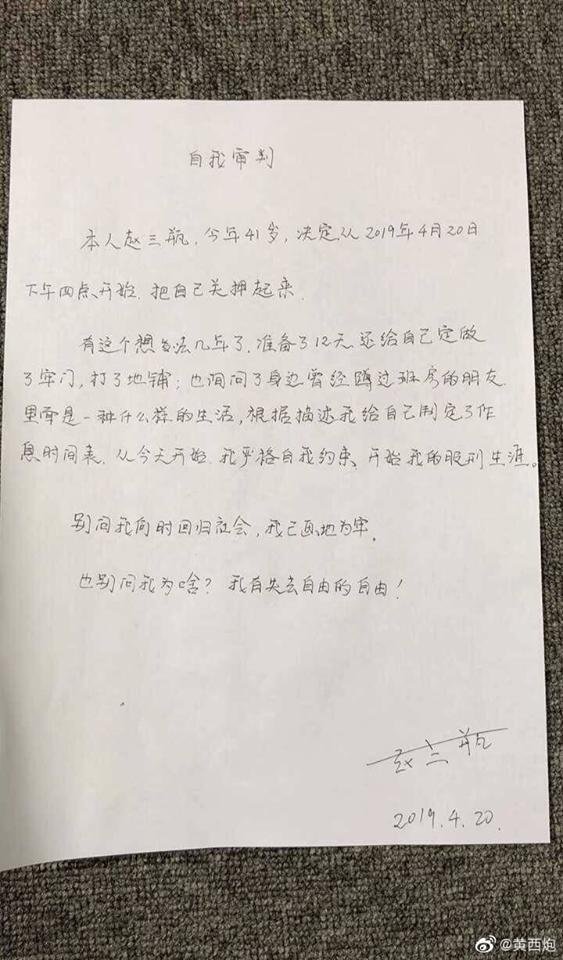 自我审判
本人赵三瓶，今年41岁，决定从2019年4月20日
下午四点开始.把自己关押起来.
有这个想法几年了.准备了12天.还给自己定做
了牢门，打了地铺；也询问了身边曾经蹲过班房的朋友
里面是一种什么样的生活，根据描述我给自己制定了作
息时间表.从今天开始.我严格自我约束.开始我的服刑生涯。
别问我何时回归社会，我已画地为牢.
也别问我为啥？我有失去自由的自由！
赵三瓶
2019.4.20.
@黄西炮